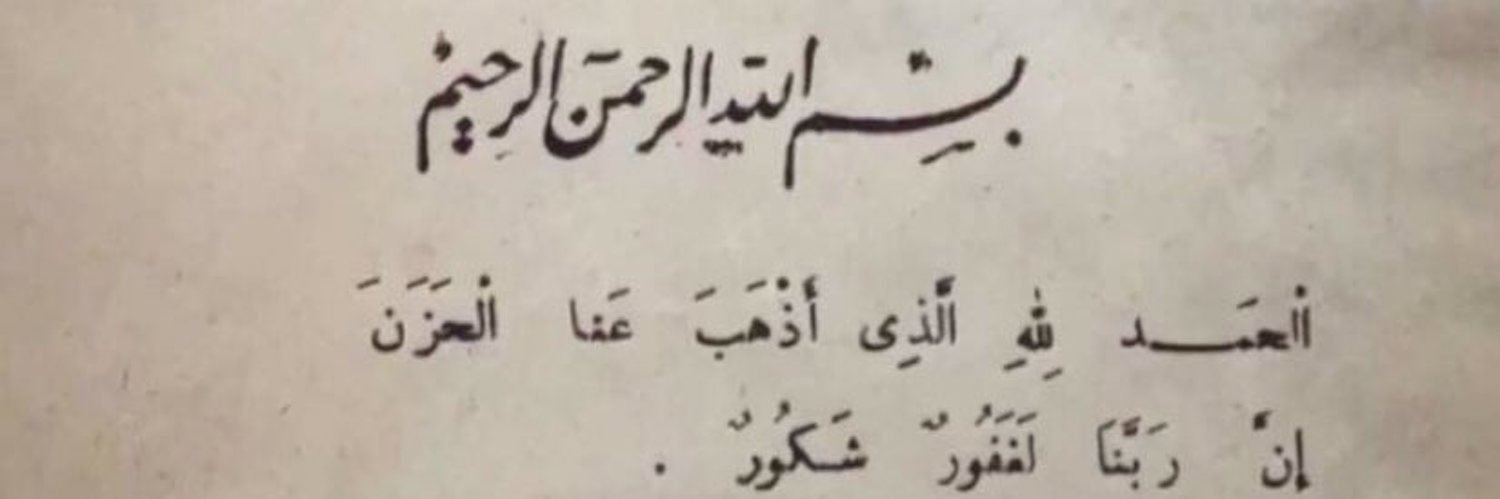 بسم الله الرحمن الرحيم
اْلحَمـد لِلهِ الَّذِى أَذْهَبَ عَنا الْحَزَنَ
إنَّ رَبَّنَا لَغَفُورٌ شَـكُورٌ .